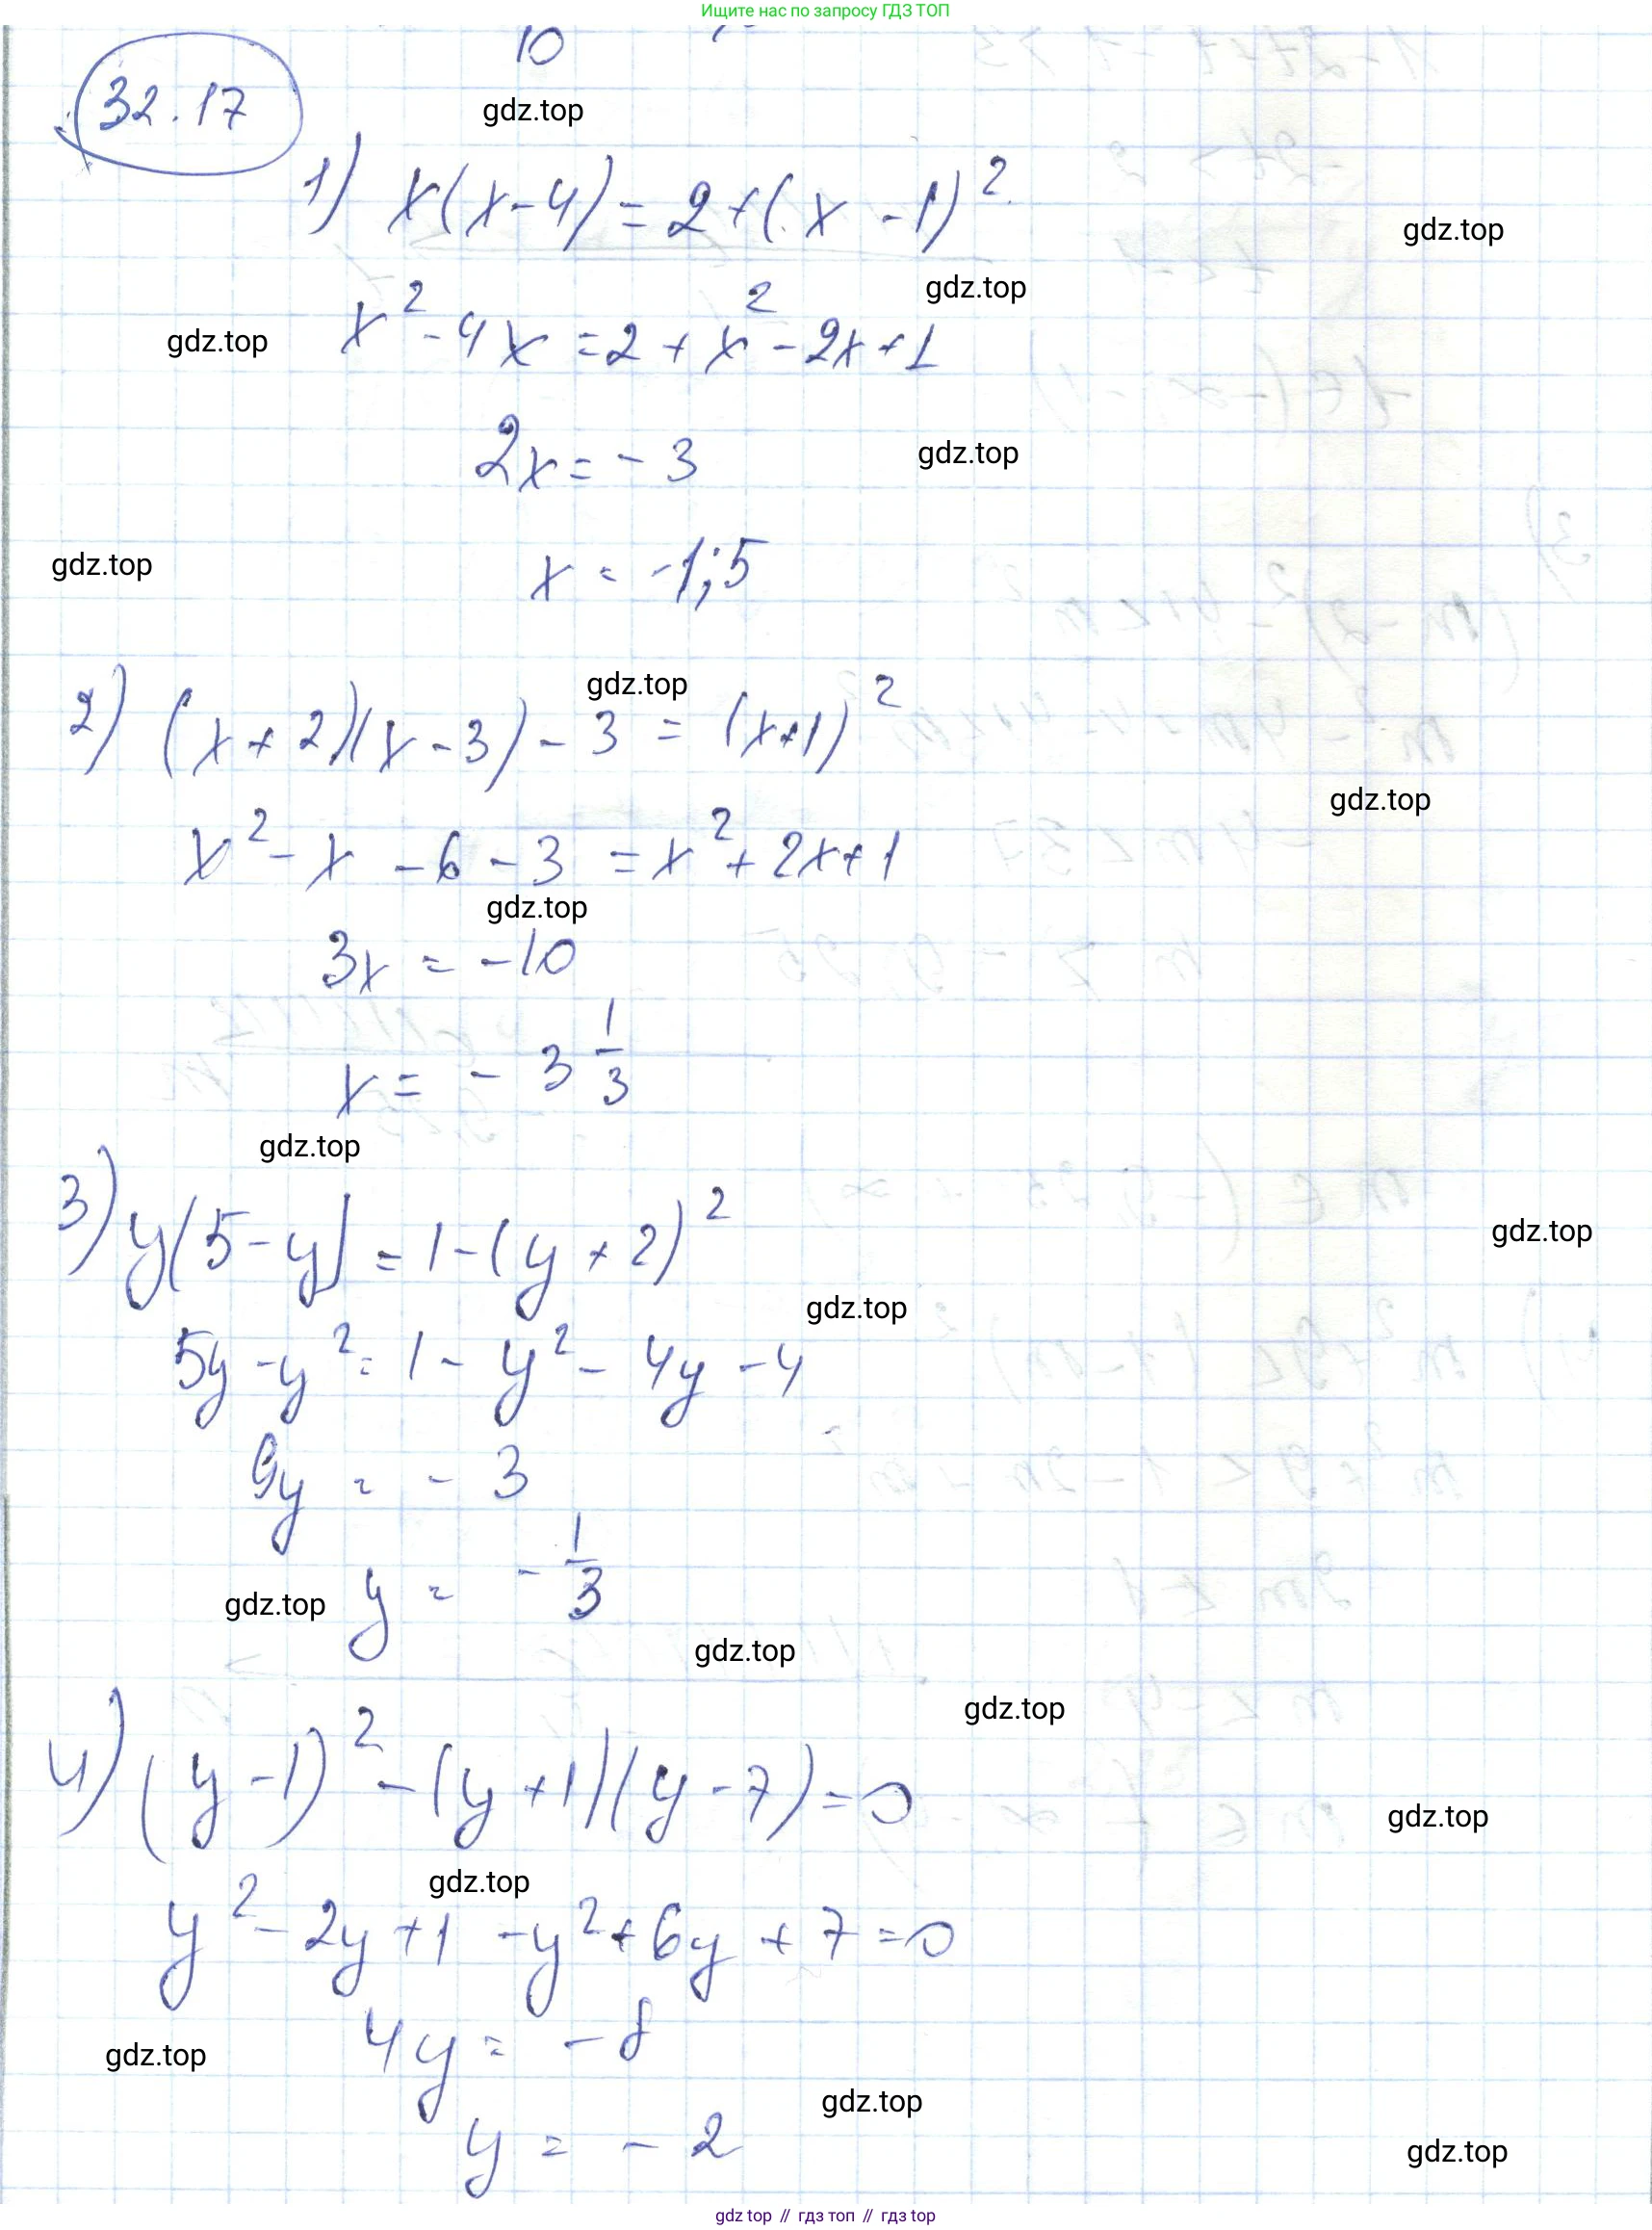 Ищите нас по запросу ГДЗ ТОП
10
32.17
gdz.top
1) x(x-4)=2+(x-1)²
gdz.top
gdz.top
x²-4x=2+x²-2x+1
gdz.top
2x=-3
gdz.top
x=-1;5
gdz.top
gdz.top
2) (x+2)(x-3)-3=(x+1)²
gdz.top
x²-x-6-3=x²+2x+1
gdz.top
3x=-10
x=-3 1/3
gdz.top
3) y(5-y)=1-(y+2)²
gdz.top
gdz.top
5y-y²=1-y²-4y-4
9y=-3
y=-1/3
gdz.top
gdz.top
gdz.top
4) (y-1)²-(y+1)(y-7)=0
gdz.top
gdz.top
y²-2y+1-y²+6y+7=0
4y=-8
gdz.top
gdz.top
y=-2
gdz.top
gdz top // гдз топ // гдз top